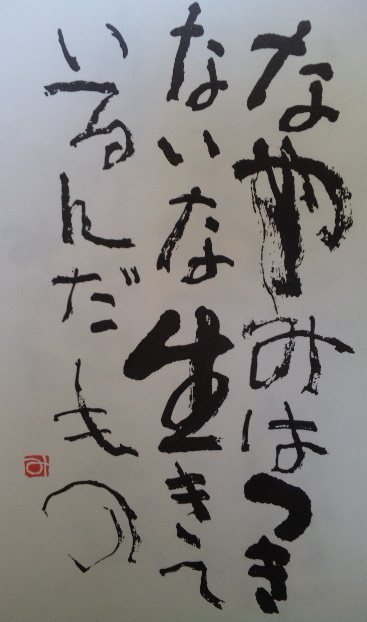 なやみはつき
ないな生きて
いるんだもの
み